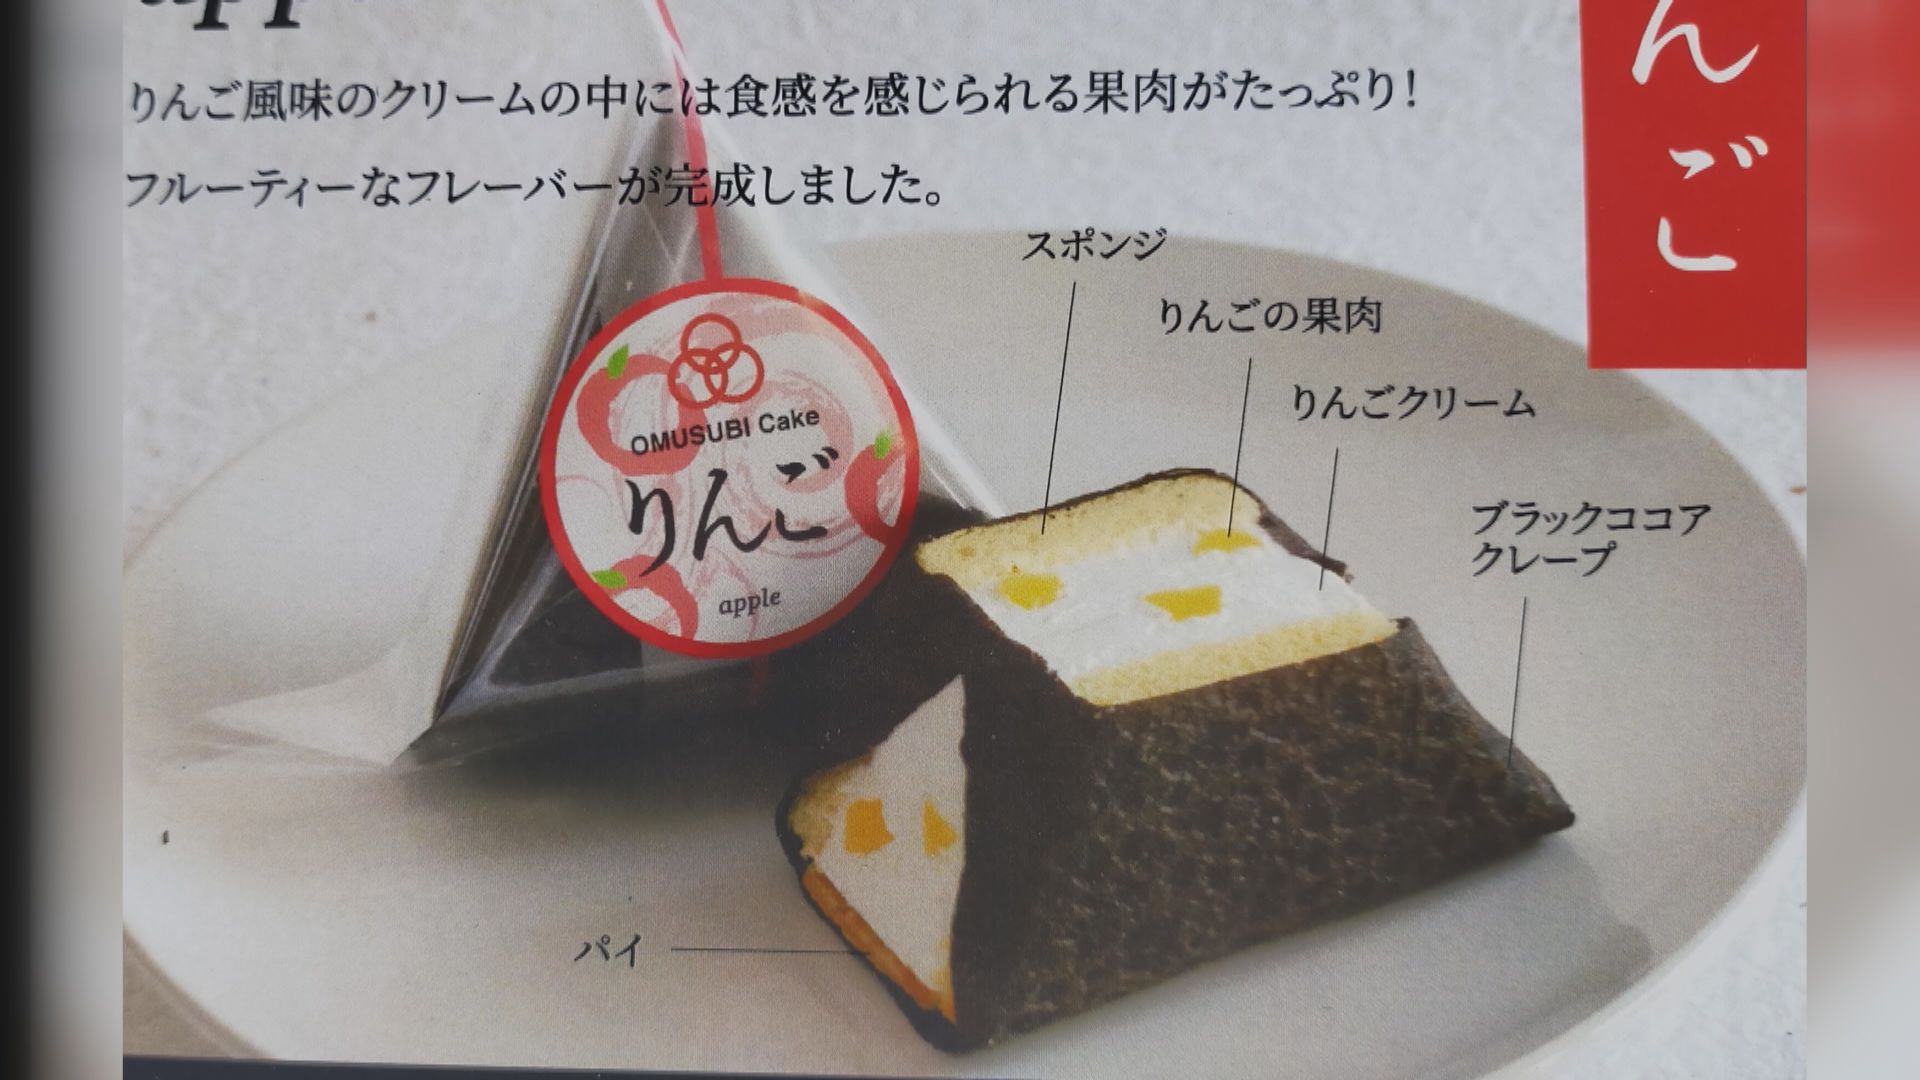 りんご風味のクリームの中には食感を感じられる果肉がたっぷり!
フルーティーなフレーバーが完成しました。
んご
スポンジ
りんごの果肉
りんごクリーム
ブラックココア
クレープ
OMUSUBI Cake
りんご
apple
パイ